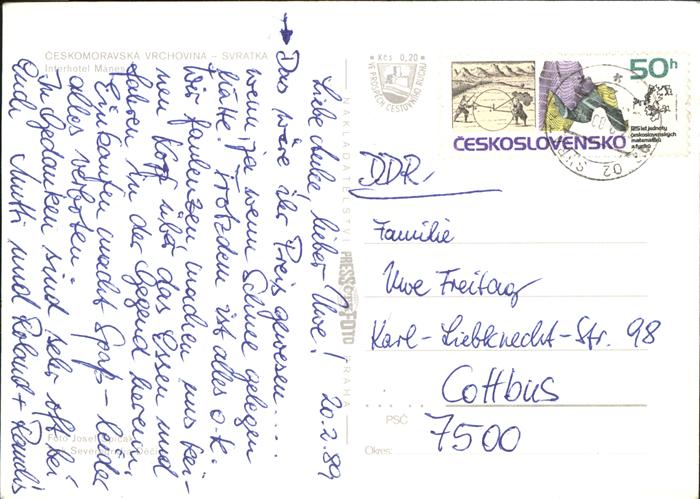 ČESKOMORAVSKÁ VRCHOVINA – SVRATKA
Interhotel Mánes
Liebe Anke, lieber Uwe! 20.2.89
Das wäre ihr Preis gewesen....
wenn, ja wenn Schnee gelegen
hätte. Trotzdem ist alles o.k.
Wir faulenzen, machen uns kei-
nen Kopf über das Essen und
fahren in der Gegend herum.
Einkaufen macht Spaß - leider
alles verboten.
In Gedanken sind sehr oft bei
Euch Mutti und Roland +
Foto Josef
Severografia Děčín
NAKLADATELSTVÍ
PRESSFOTO
PRAHA
Kčs 0,20
VE PROSPĚCH CESTOVNÍHO RUCHU
50h
125 let jednoty
československých
matematiků
a fyziků
ČESKOSLOVENSKO
DDR
Familie
Uwe Freitag
Karl-Liebknecht-Str. 98
Cottbus
PSČ
7500
Okres: